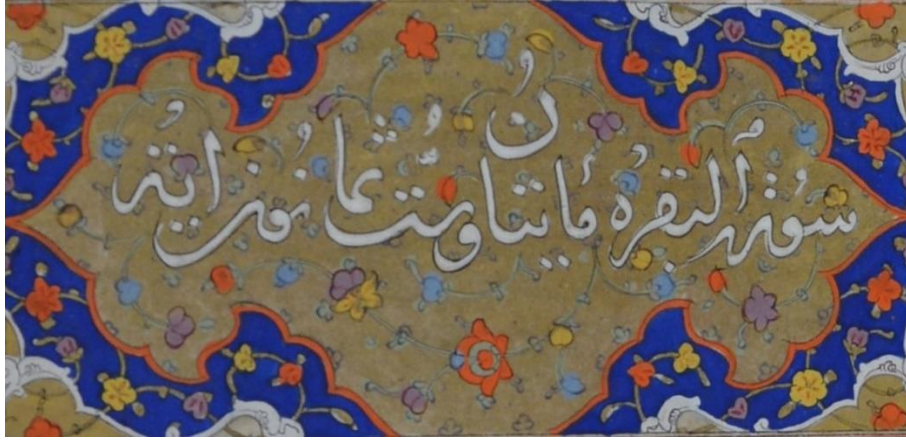 سورة البقرة مايتان وست ثمانون اية